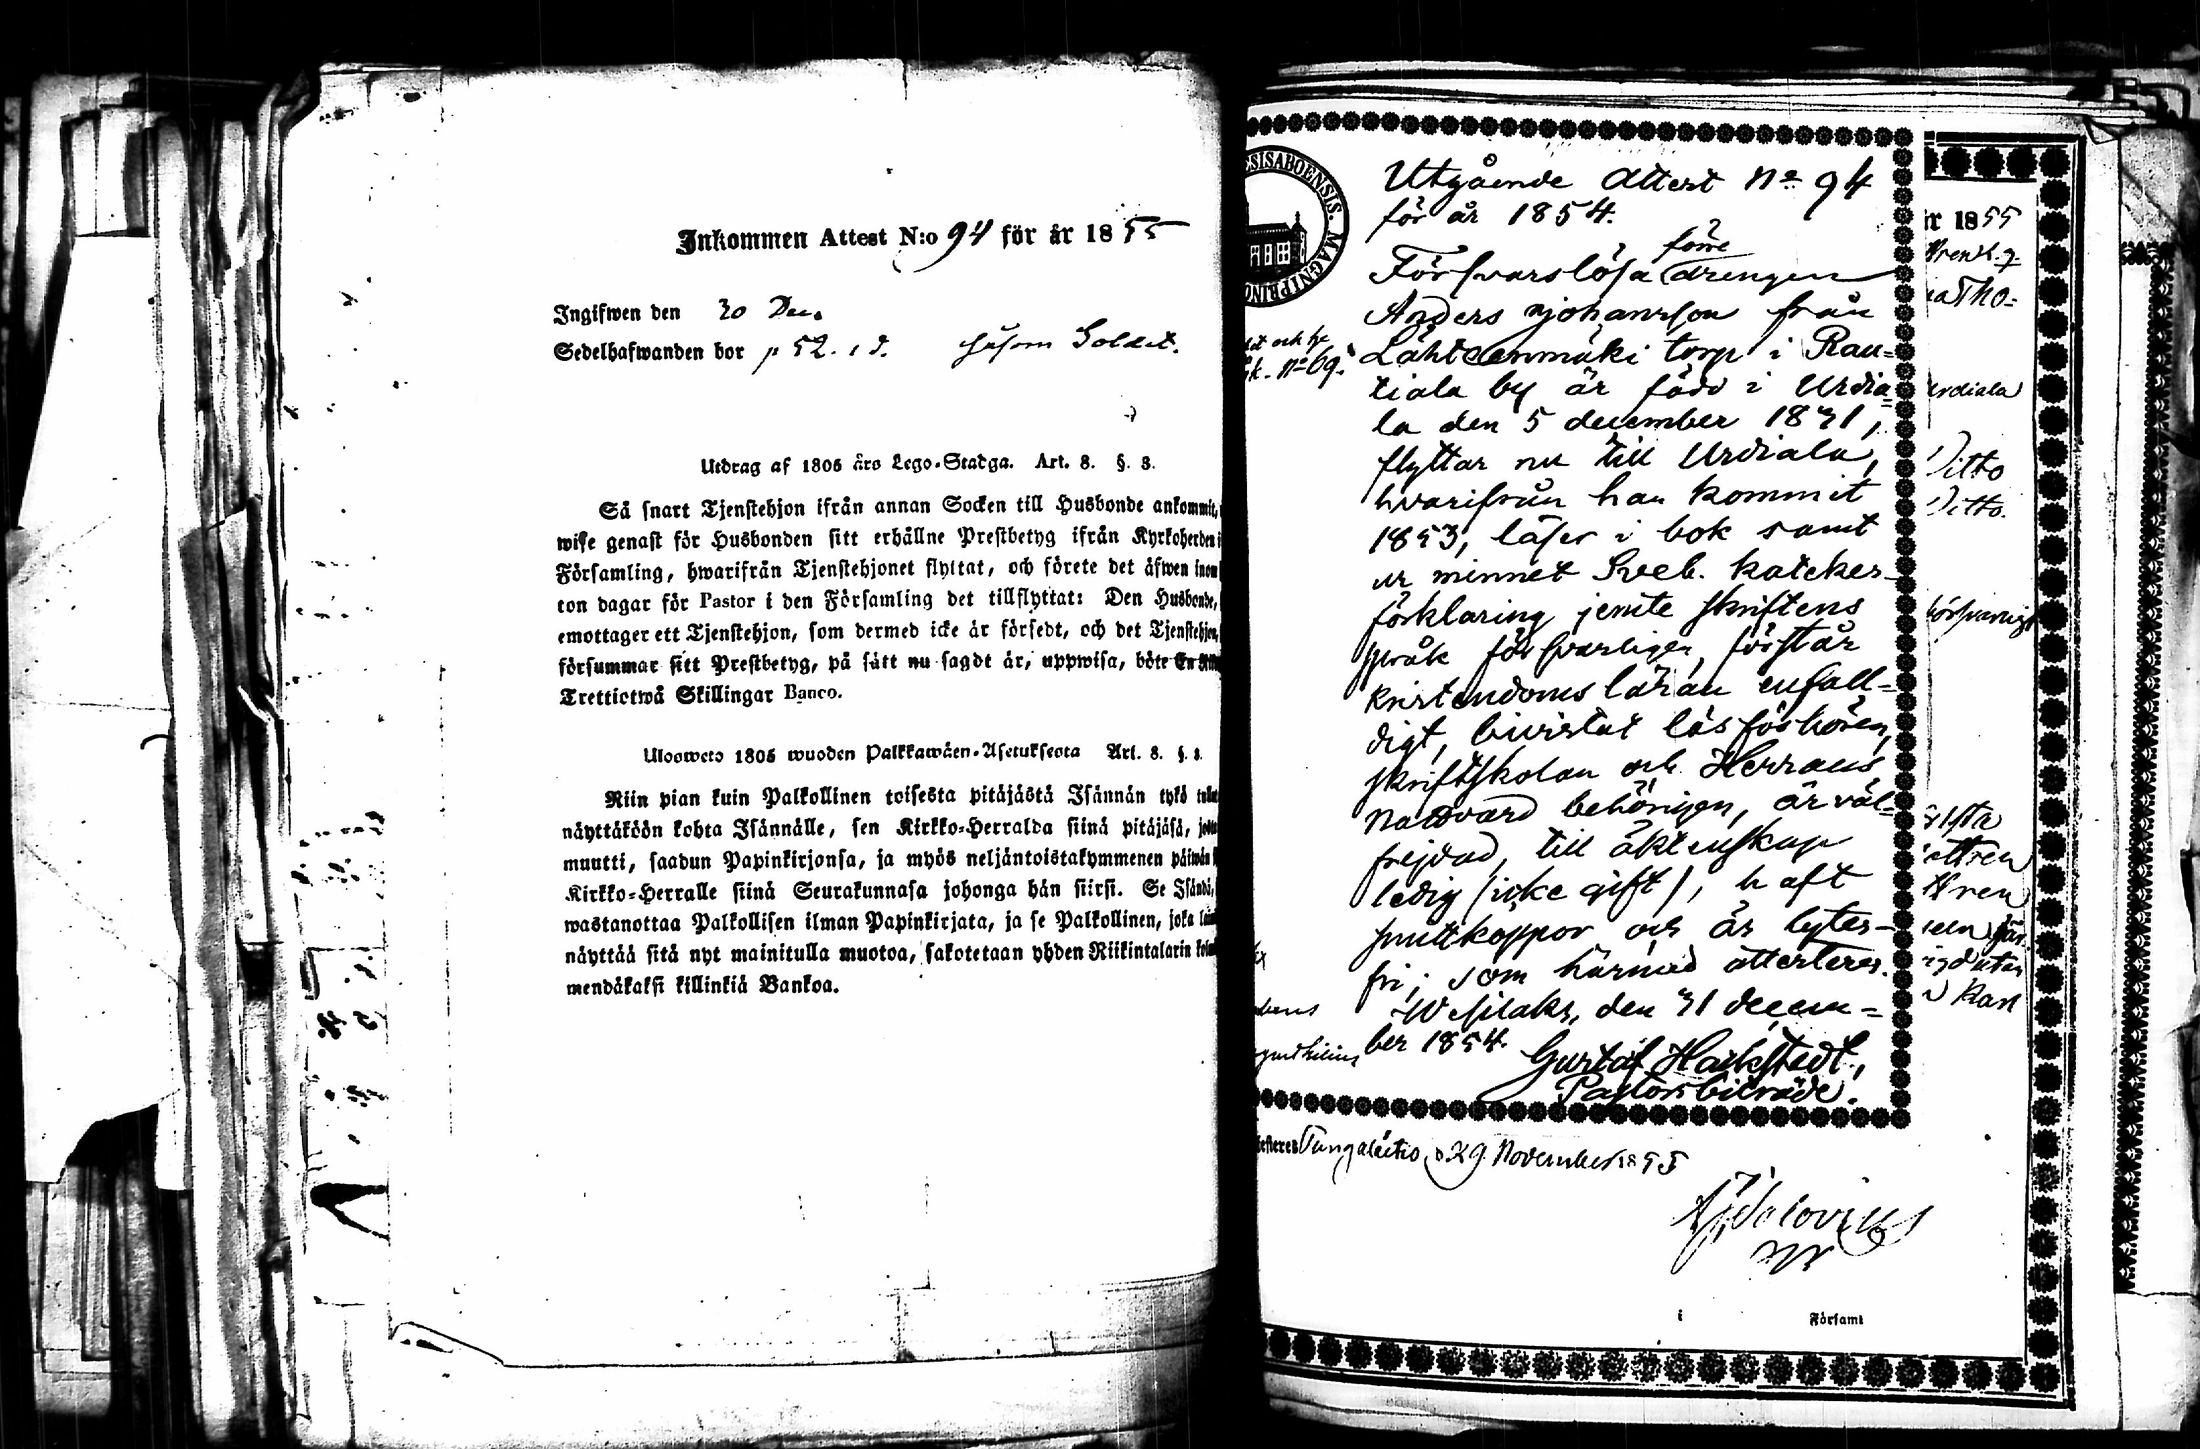 Inkommen Attest N:o 94 för år 1855
Ingifwen den 20 Dec.
Sedelhafwanden bor p 52. såsom Soldat.
Utdrag af 1805 års Lego-Stadga. Art. 8. §. 3.
Så snart Tjenstehjon ifrån annan Socken till Husbonde ankommit,
wise genast för Husbonden sitt erhållne Prestbetyg ifrån Kyrkoherden i
Församling, hwarifrån Tjenstehjonet flyttat, och förete det äfwen inom
ton dagar för Pastor i den Församling det tillflyttat: Den Husbonde,
emottager ett Tjenstehjon, som dermed icke är försedt, och det Tjenstehjon,
försummar sitt Prestbetyg, på sätt nu sagdt är, uppwisa, böte En
Trettiotwå Skillingar Banco.
Uloswets 1805 wuoden Palkkawäen-Asetuksesta Art. 8. §. 3.
Niin pian kuin Palkollinen toisesta pitäjästä Isännän tykö
näyttäköön kohta Isännälle, sen Kirkko-Herralda siinä pitäjäsä,
muutti, saadun Papinkirjonsa, ja myös neljäntoistakymmenen päiwän
Kirkko-Herralle siinä Seurakunnasa johonga hän siirsi. Se Isändä,
wastanottaa Palkollisen ilman Papinkirjata, ja se Palkollinen, joka
näyttää sitä nyt mainitulla muotoa, sakotetaan yhden Riikintalarin
mendäkaksi killinkiä Bankoa.
ESISABOENSIS. MAGNI PRINC
Utgående Attest No 94
för år 1854.
före
Försvarslösa drengen
Anders Johansson från
Lähteenmäki torp i Rau=
tiala by är född i Urdia=
la den 5 december 1831,
flyttar nu till Urdiala,
hvarifrån han kommit
1853, läser i bok samt
ur minnet Sveb. katekes-
förklaring jemte skriftens
språk försvarligen, förstår
kristendomsläran enfall=
digt, bivistat läsförhören,
skriftskolan och Herrans
Nattvard behörigen, är väl=
frejdad, till äktenskap
ledig (icke gift), haft
smittkoppor och är lytes-
fri; som härmed attesteras.
Wesilaks, den 31 decem=
ber 1854.
Gustaf Hackstedt,
Pastorsbiträde.
No 69.
November 1855
Församl
år 1855
Urdiala
Ditto
Ditto.